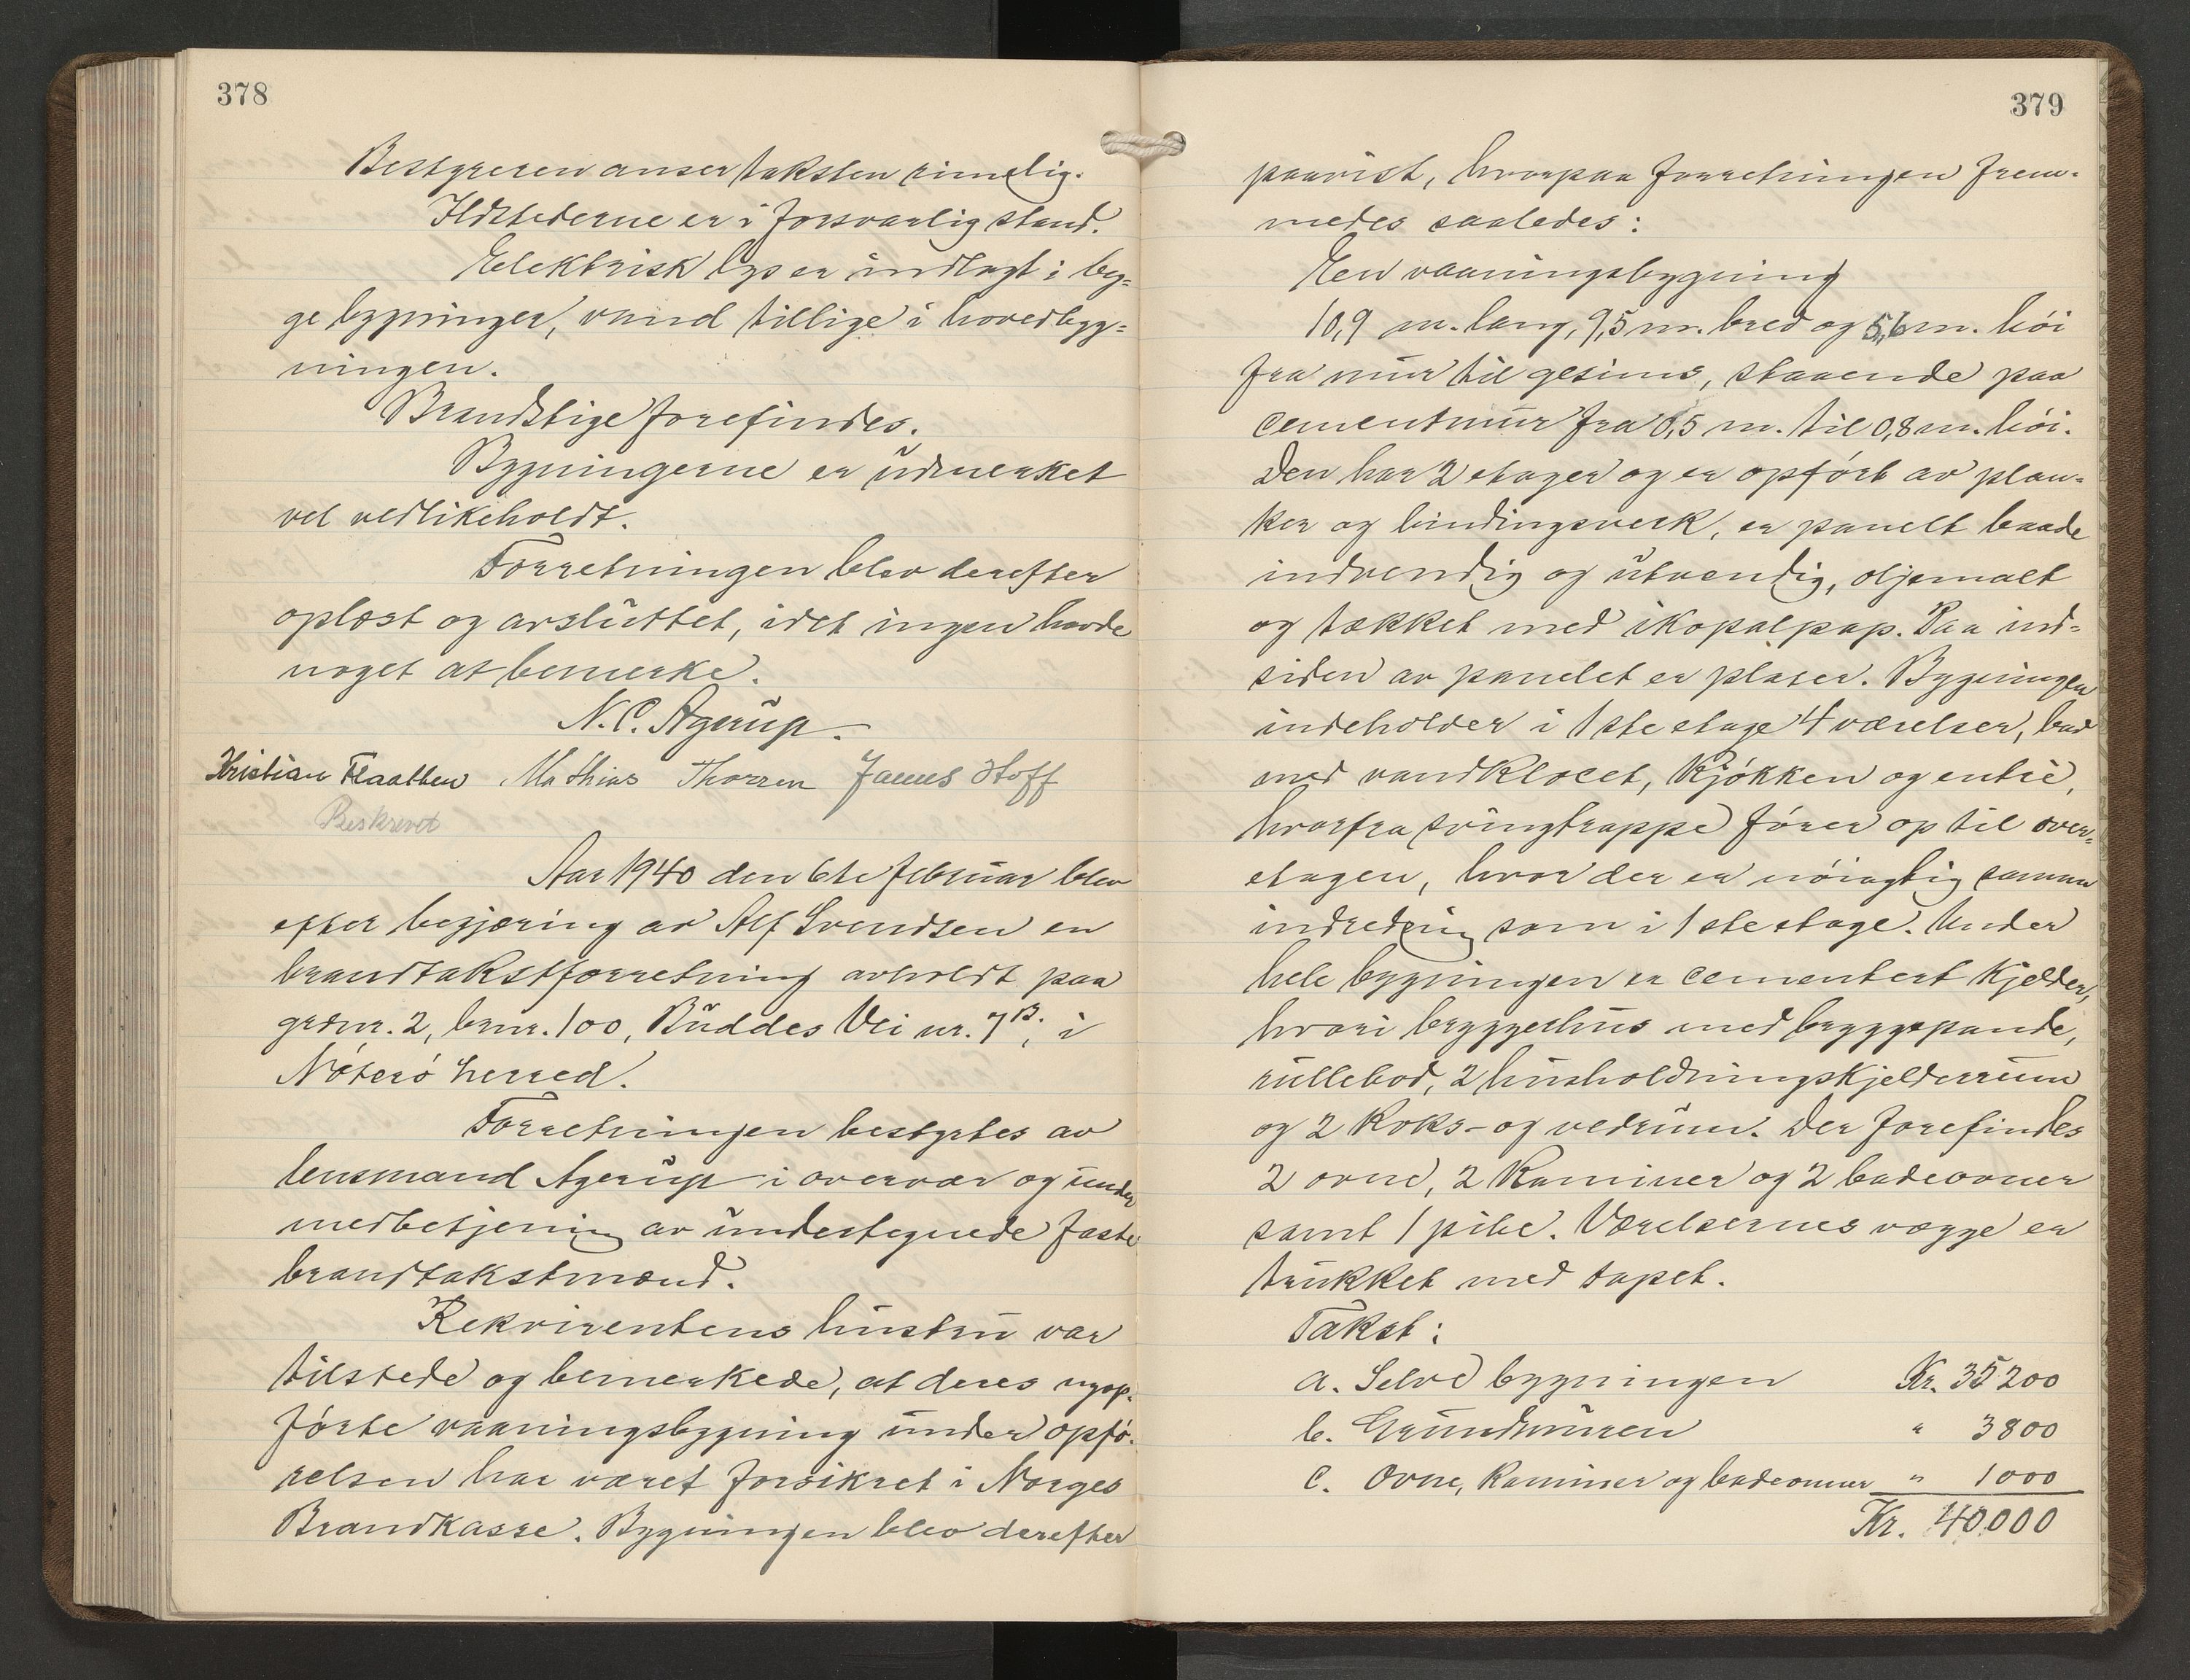 378
Bestyreren anser taksten rimelig.
Ildstederne er i forsvarlig stand.
Elektrisk lys er indlagt i beg-
ge bygninger, vand tillige i hovedbyg-
ningen.
Brandstige forefindes.
Bygningerne er udmerket
vel vedlikeholdt.
Forretningen blev derefter
oplæst og avsluttet, idet ingen havde
noget at bemerke.
N. C. Agerup.
Kristian Flaatten Mathias Thorsen James Hoff
Beskrevet
Aar 1940 den 6te februar blev
efter begjæring av Alf Svendsen en
brandtakstforretning avholdt paa
grdnr. 2, brnr. 100, Buddes Vei nr. 7B, i
Nøterø herred.
Forretningen bestyrtes av
lensmand Agerup i overvær og under
medbetjening av undertegnede faste
brandtakstmænd.
Rekvirentens hustru var
tilstede og bemerkede, at deres nyop-
førte vaaningsbygning under opfø-
relsen har været forsikret i Norges
Brandkasse. Bygningen blev derefter
379
paavist, hvorpaa forretningen frem-
medes saaledes:
En vaaningsbygning
10,9 m. lang, 9,5 m. bred og 5,6 m. høi
fra mur til gesims, staaende paa
cementmur fra 0,5 m. til 0,8 m. høi.
Den har 2 etager og er opført av plan-
ker og bindingsverk, er panelt baade
indvendig og utvendig, oljemalt
og tækket med ikopalpap. Paa ind-
siden av panelet er plater. Bygningen
indeholder i 1ste etage 4 værelser, bad
med vandklocet, kjøkken og entre,
hvorfra svingtrappe fører op til over-
etagen, hvor der er nøiagtig samme
indredning som i 1ste etage. Under
hele bygningen er cementert kjelder,
hvori bryggerhus med bryggepande,
rullebod, 2 husholdningskjelderrum
og 2 koks- og vedrum. Der forefindes
2 ovne, 2 kaminer og 2 badeovner
samt 1 pibe. Værelsernes vægge er
trukket med tapet.
Takst:
a. Selve bygningen Kr. 35 200
b. Grundmuren " 3800
c. Ovne, kaminer og badeovner " 1000
Kr. 40.000